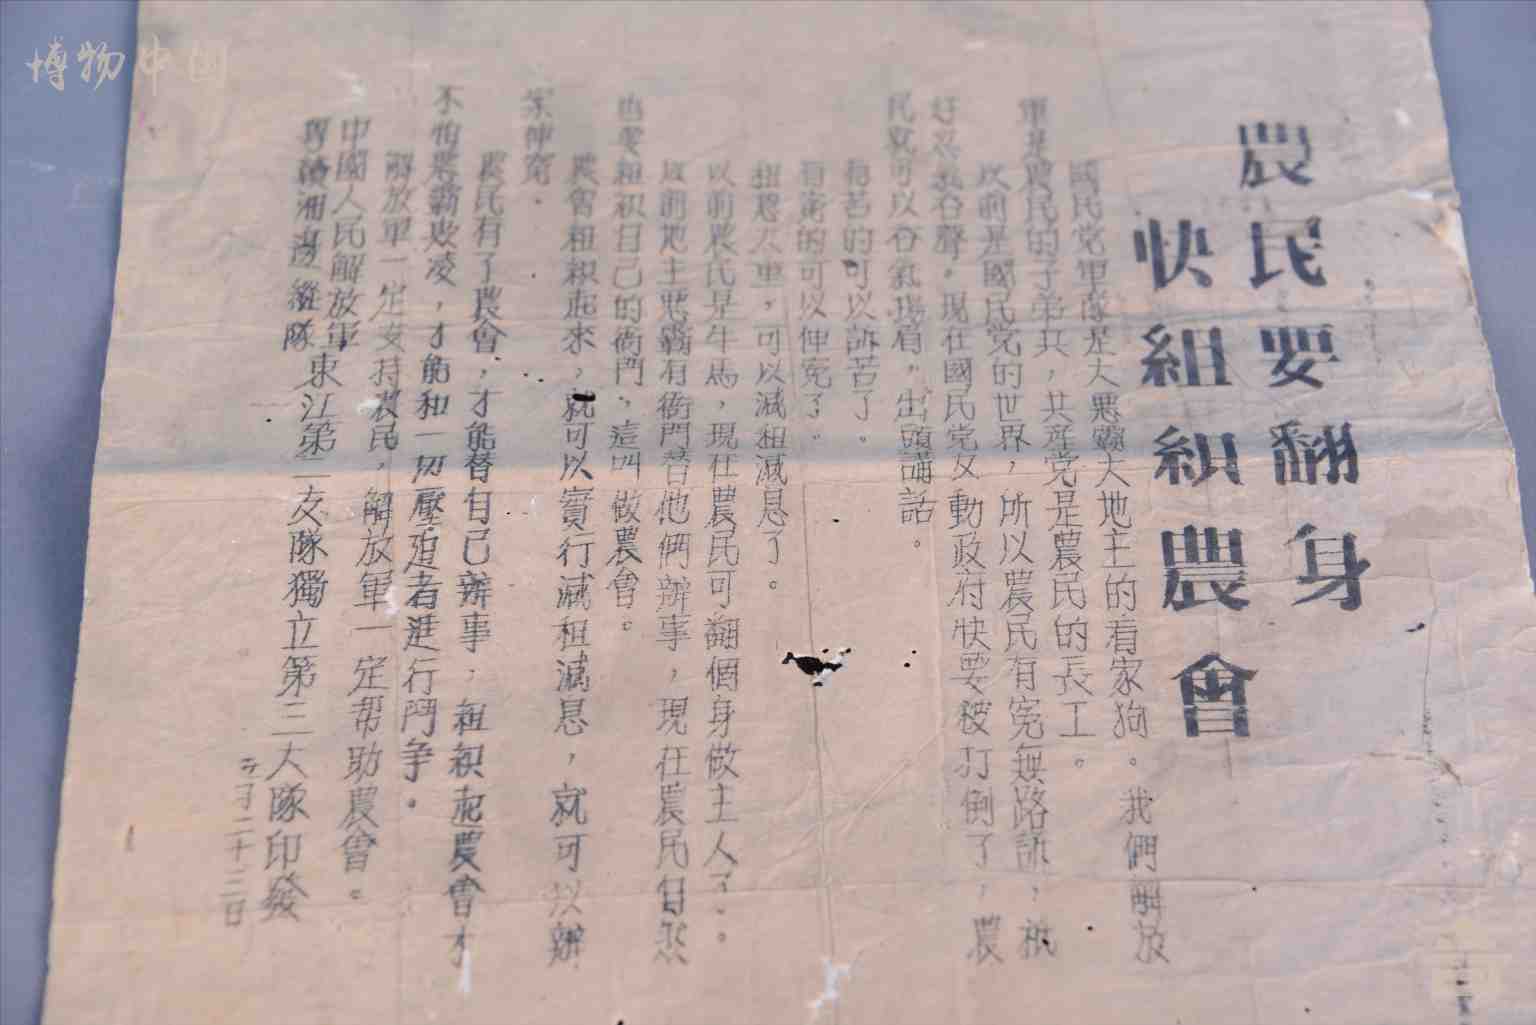 博物中国
農民要翻身
快組織農會
國民党軍隊是大惡霸大地主的看家狗。我們解放
軍是農民的子弟兵，共產党是農民的長工。
以前是國民党的世界，所以農民有寃無路訴，祇
好忍氣吞聲。現在國民党反動政府快要被打倒了，農
民就可以吞氣揚眉，出頭講話。
有苦的可以訴苦了。
有寃的可以伸寃了。
租息太重，可以減租減息了。
以前農民是牛馬，現在農民可翻個身做主人了。
以前地主惡霸有衙門替他們辦事，現在農民自然
也要組织自己的衙門，這叫做農會。
農會組織起來，就可以實行減租減息，就可以辦
家伸寃。
農民有了農會，才能替自己辦事，組织起農會才
不怕惡霸欺凌，才能和一切壓迫者進行鬥争。
解放軍一定支持農民，解放軍一定帮助農會。
中國人民解放軍
粤贛湘邊縱隊東江第二支隊獨立第三大隊印發
二月二十三日